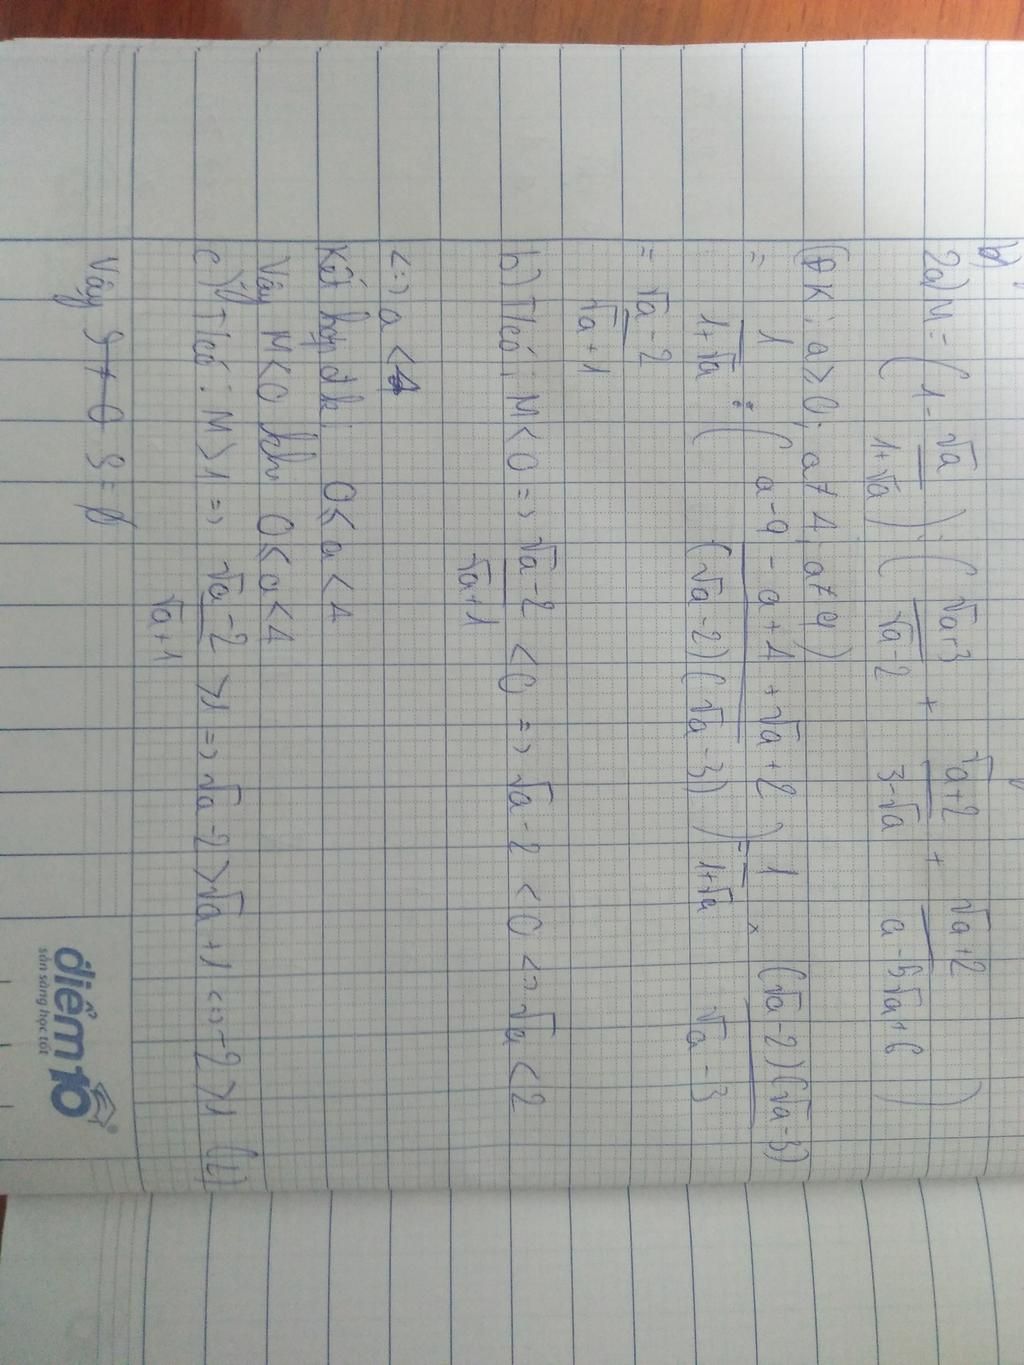 b)
2a) M = (1 - √a/(1+√a)) : ((√a+3)/(√a-2) + (√a+2)/(3-√a) + (√a+2)/(a-5√a+6))
(ĐK: a ≥ 0; a ≠ 4; a ≠ 9)
= 1/(1+√a) : ((a-9-a+4+√a+2)/((√a-2)(√a-3))) = 1/(1+√a) × ((√a-2)(√a-3))/(√a-3)
= (√a-2)/(√a+1)
b) T/có: M < 0 => (√a-2)/(√a+1) < 0 => √a - 2 < 0 <=> √a < 2
<=> a < 4
Kết hợp đk: 0 ≤ a < 4
Vậy M < 0 khi 0 ≤ a < 4
c) T/có: M > 1 => (√a-2)/(√a+1) > 1 => √a-2 > √a+1 <=> -2 > 1 (L)
Vậy S = ∅
điểm 10
sẵn sàng học tốt